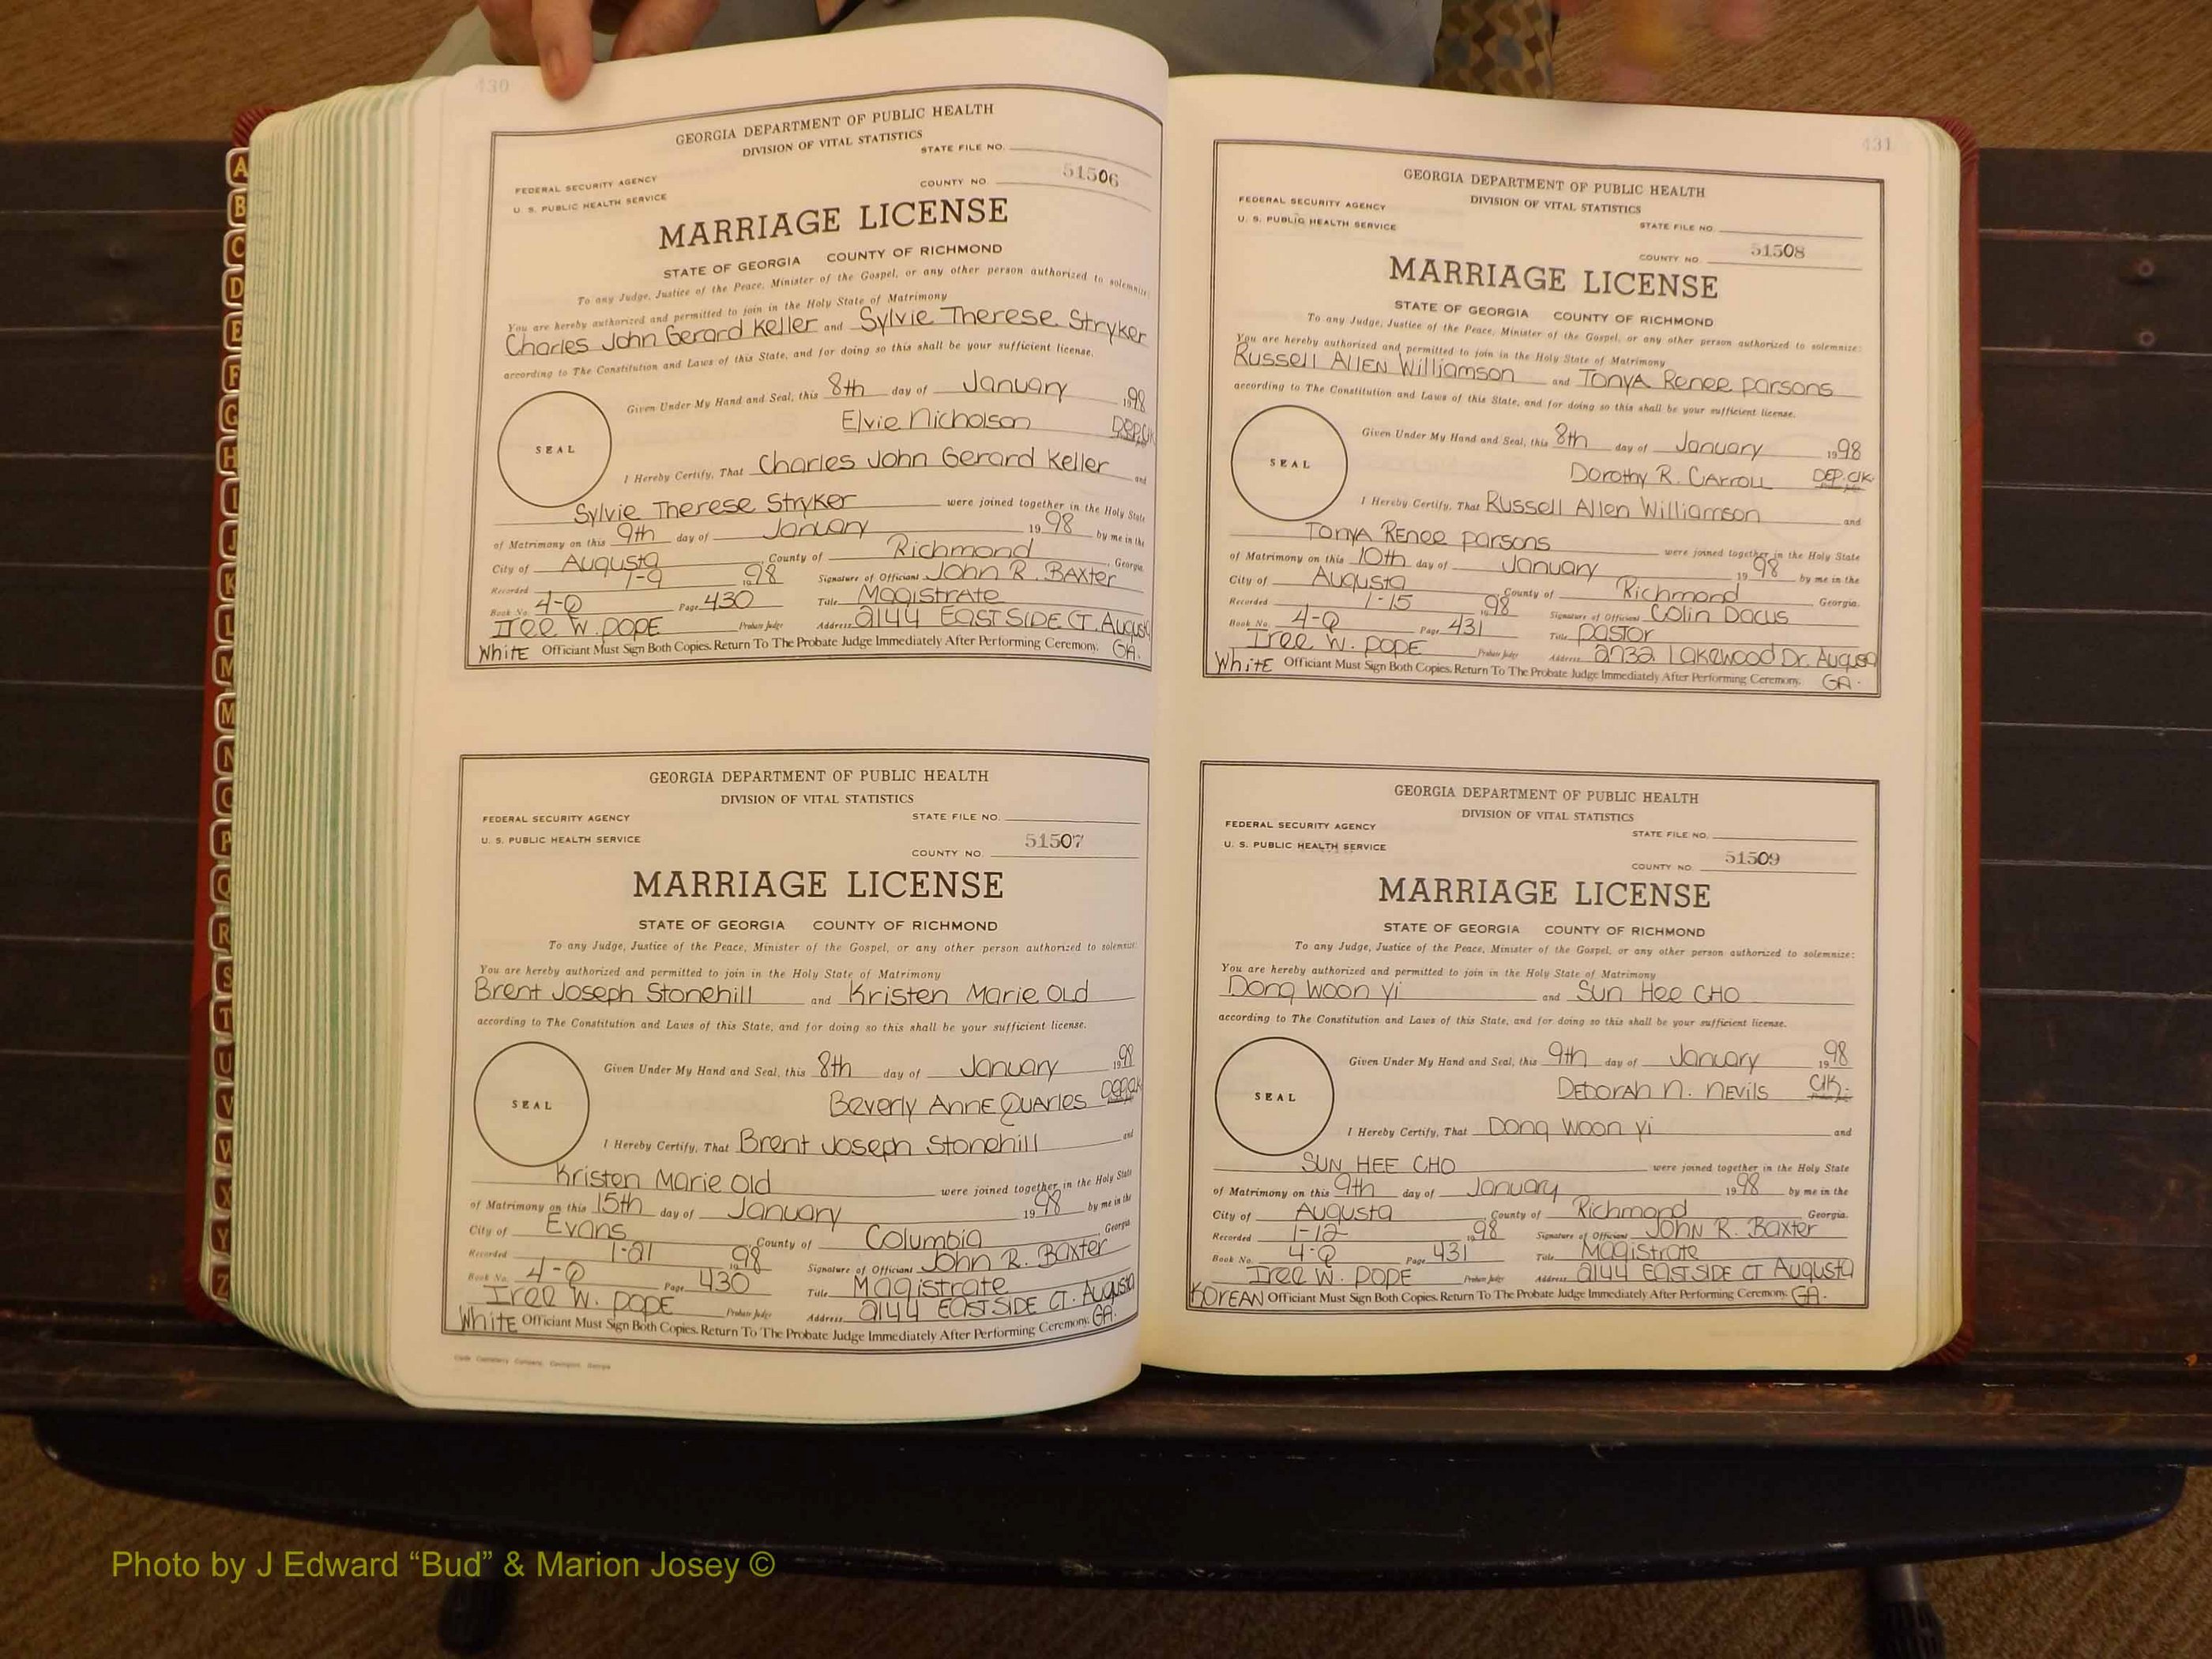 430
GEORGIA DEPARTMENT OF PUBLIC HEALTH
DIVISION OF VITAL STATISTICS
STATE FILE NO.
FEDERAL SECURITY AGENCY
U. S. PUBLIC HEALTH SERVICE
COUNTY NO 51506
MARRIAGE LICENSE
STATE OF GEORGIA COUNTY OF RICHMOND
To any Judge, Justice of the Peace, Minister of the Gospel, or any other person authorized to solemnize:
You are hereby authorized and permitted to join in the Holy State of Matrimony
Charles John Gerard Keller and Sylvie Therese Stryker
according to The Constitution and Laws of this State, and for doing so this shall be your sufficient license.
Given Under My Hand and Seal, this 8th day of January 1998
Elvie Nicholson Dep. Clk
SEAL
I Hereby Certify, That Charles John Gerard Keller and
Sylvie Therese Stryker were joined together in the Holy State
of Matrimony on this 9th day of January 1998 by me in the
City of Augusta County of Richmond Georgia.
Recorded 1-9 1998 Signature of Officiant John R. Baxter
Book No. 4-Q Page 430 Title Magistrate
Iree W. Pope Probate Judge Address 2144 EAST SIDE CT. Augusta
White Officiant Must Sign Both Copies. Return To The Probate Judge Immediately After Performing Ceremony. GA.
GEORGIA DEPARTMENT OF PUBLIC HEALTH
DIVISION OF VITAL STATISTICS
FEDERAL SECURITY AGENCY STATE FILE NO.
U. S. PUBLIC HEALTH SERVICE
COUNTY NO. 51507
MARRIAGE LICENSE
STATE OF GEORGIA COUNTY OF RICHMOND
To any Judge, Justice of the Peace, Minister of the Gospel, or any other person authorized to solemnize:
You are hereby authorized and permitted to join in the Holy State of Matrimony
Brent Joseph Stonehill and Kristen Marie Old
according to The Constitution and Laws of this State, and for doing so this shall be your sufficient license.
Given Under My Hand and Seal, this 8th day of January 1998
Beverly Anne Quarles Dep. Clk
SEAL
I Hereby Certify, That Brent Joseph Stonehill and
Kristen Marie Old were joined together in the Holy State
of Matrimony on this 15th day of January 1998 by me in the
City of Evans County of Columbia Georgia.
Recorded 1-21 1998 Signature of Officiant John R. Baxter
Book No. 4-Q Page 430 Title Magistrate
Iree W. Pope Probate Judge Address 2144 EAST SIDE CT. Augusta
White Officiant Must Sign Both Copies. Return To The Probate Judge Immediately After Performing Ceremony. GA.
431
GEORGIA DEPARTMENT OF PUBLIC HEALTH
DIVISION OF VITAL STATISTICS
FEDERAL SECURITY AGENCY
U. S. PUBLIC HEALTH SERVICE STATE FILE NO.
COUNTY NO. 51508
MARRIAGE LICENSE
STATE OF GEORGIA COUNTY OF RICHMOND
To any Judge, Justice of the Peace, Minister of the Gospel, or any other person authorized to solemnize:
You are hereby authorized and permitted to join in the Holy State of Matrimony
Russell Allen Williamson and Tonya Renee Parsons
according to The Constitution and Laws of this State, and for doing so this shall be your sufficient license.
Given Under My Hand and Seal, this 8th day of January 1998
Dorothy R. Carroll DEP. Clk.
SEAL
I Hereby Certify, That Russell Allen Williamson and
Tonya Renee Parsons were joined together in the Holy State
of Matrimony on this 10th day of January 1998 by me in the
City of Augusta County of Richmond Georgia.
Recorded 1-15 1998 Signature of Officiant Colin Dacus
Book No. 4-Q Page 431 Title Pastor
Iree W. Pope Probate Judge Address 2732 Lakewood Dr. Augusta
White Officiant Must Sign Both Copies. Return To The Probate Judge Immediately After Performing Ceremony. GA.
GEORGIA DEPARTMENT OF PUBLIC HEALTH
DIVISION OF VITAL STATISTICS
FEDERAL SECURITY AGENCY STATE FILE NO.
U. S. PUBLIC HEALTH SERVICE
COUNTY NO 51509
MARRIAGE LICENSE
STATE OF GEORGIA COUNTY OF RICHMOND
To any Judge, Justice of the Peace, Minister of the Gospel, or any other person authorized to solemnize:
You are hereby authorized and permitted to join in the Holy State of Matrimony
Dong Woon Yi and Sun Hee CHO
according to The Constitution and Laws of this State, and for doing so this shall be your sufficient license.
Given Under My Hand and Seal, this 9th day of January 1998
Deborah N. Nevils Clk.
SEAL
I Hereby Certify, That Dong Woon Yi and
SUN HEE CHO were joined together in the Holy State
of Matrimony on this 9th day of January 1998 by me in the
City of Augusta County of Richmond Georgia.
Recorded 1-12 1998 Signature of Officiant John R. Baxter
Book No. 4-Q Page 431 Title Magistrate
Iree W. Pope Probate Judge Address 2144 EAST SIDE CT Augusta
KOREAN Officiant Must Sign Both Copies. Return To The Probate Judge Immediately After Performing Ceremony. GA.
A
B
C
D
E
F
G
H
I
J
K
L
M
M
N
O
P
Q
R
S
T
U
V
W
X
Y
Z
Photo by J Edward “Bud” & Marion Josey ©